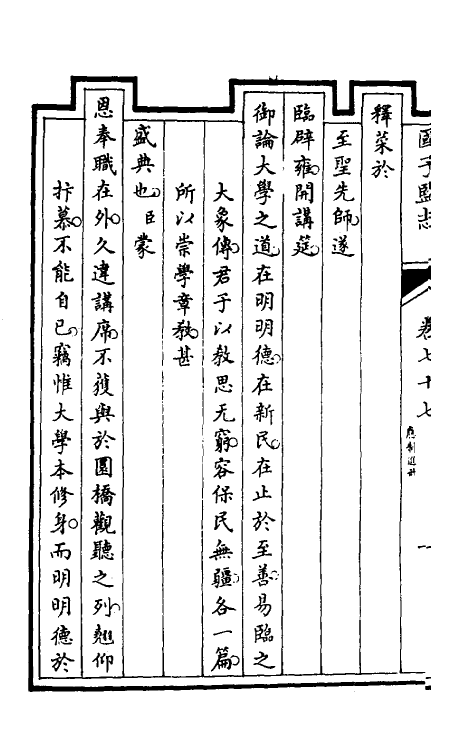 國子監志 卷七十七 一
釋菜於
至聖先師遂
臨辟雍開講筵
御論大學之道在明明德在新民在止於至善易臨之
大象傳君子以敎思无窮容保民無疆各一篇
所以崇學章敎甚
盛典也臣蒙
恩奉職在外久違講席不獲與於圜橋觀聽之列翹仰
抃慕不能自已竊惟大學本修身而明明德於